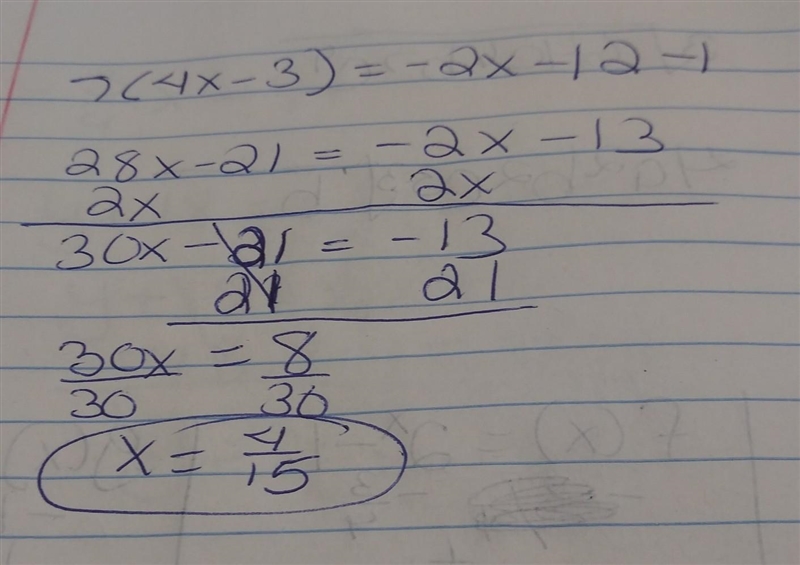 7(4x-3) = -2x-12-1
28x-21 = -2x-13
2x 2x
30x-21 = -13
21 21
30x = 8
30 30
x = 4/15